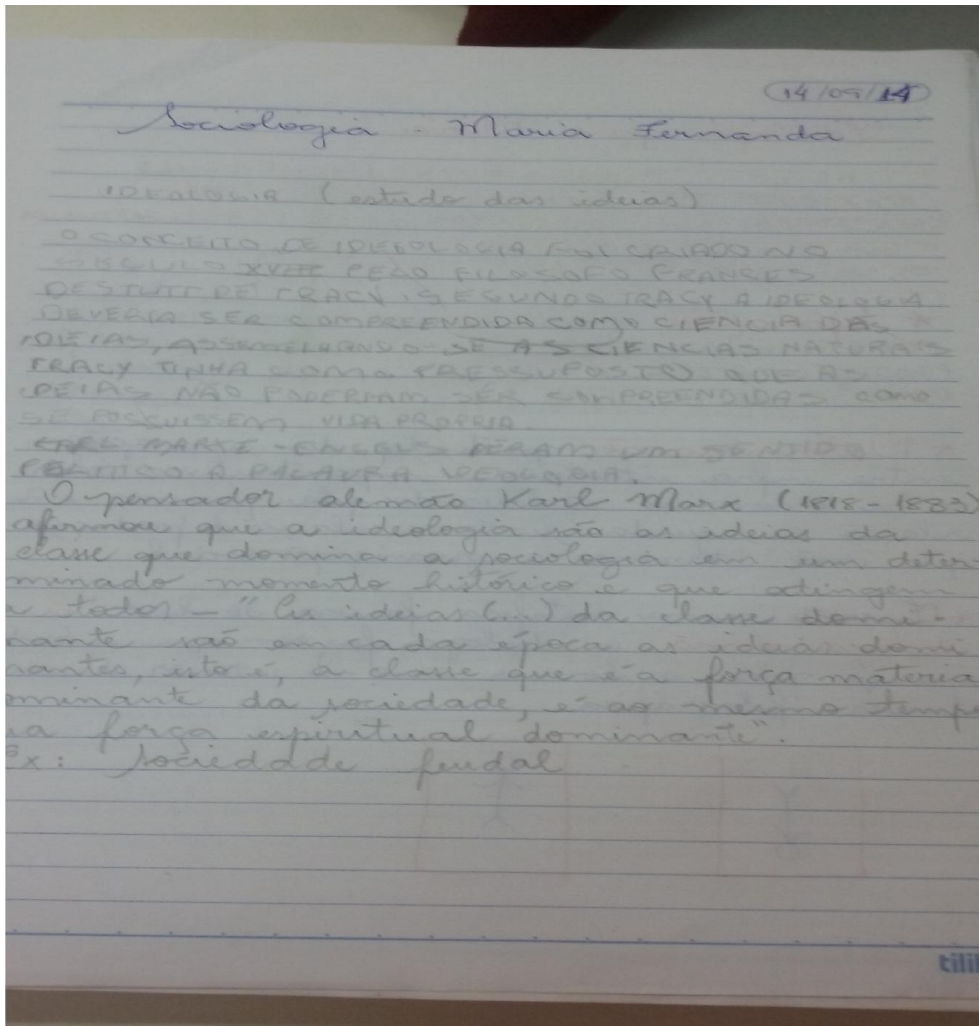 14/09/14
Sociologia - Maria Fernanda
IDEOLOGIA (estudo das ideias)
O CONCEITO DE IDEOLOGIA FOI CRIADO NO
SÉCULO XVIII PELO FILOSOFO FRANCES
DESTUTT DE TRACY. SEGUNDO TRACY A IDEOLOGIA
DEVERIA SER COMPREENDIDA COMO CIENCIA DAS
IDEIAS, ASSEMELHANDO-SE AS CIENCIAS NATURAIS
TRACY TINHA COMO PRESSUPOSTO QUE AS
IDEIAS NÃO PODERIAM SER COMPREENDIDAS COMO
SE POSSUISSEM VIDA PROPRIA.
KARL MARX E ENGELS DERAM UM SENTIDO
POLITICO A PALAVRA IDEOLOGIA.
O pensador alemão Karl Marx (1818-1883)
afirmou que a ideologia são as ideias da
classe que domina a sociologia em um deter
minado momento histórico e que atingem
a todos - "As ideias (...) da classe domi-
nante são em cada época as ideias domi
nantes, isto é, a classe que é a força materia
ominante da sociedade, é ao mesmo temp
ua força espiritual dominante".
Ex: Sociedade feudal
tili